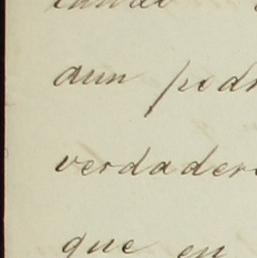 aun podr
verdader
que en